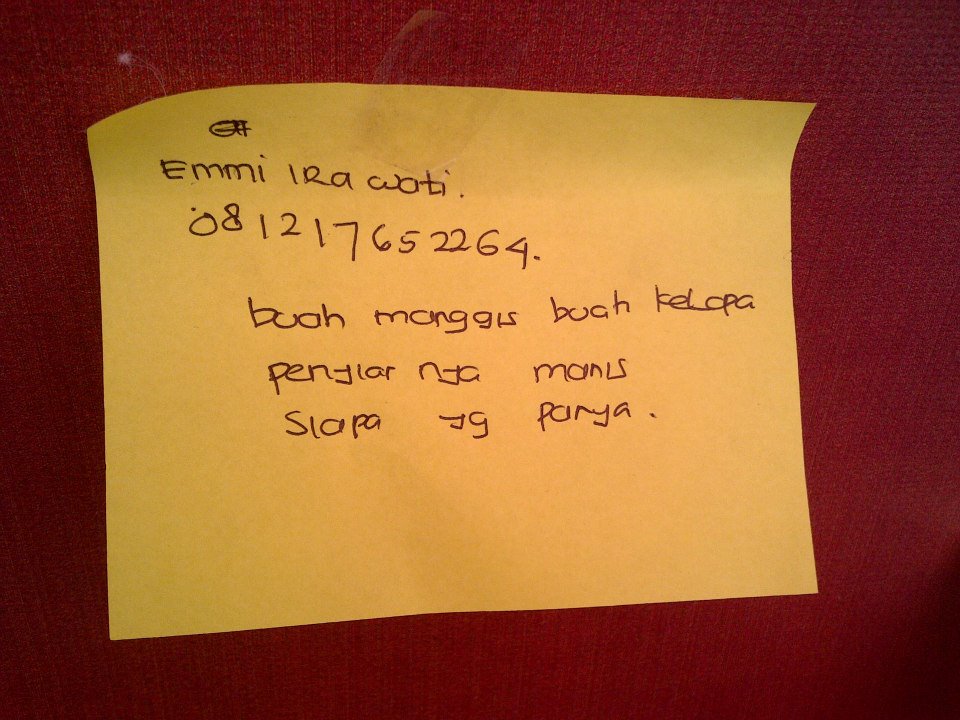 Emmi IRa wati.
081217652264.
buah manggis buah kelapa
penyiar nya manis
siapa yg punya.